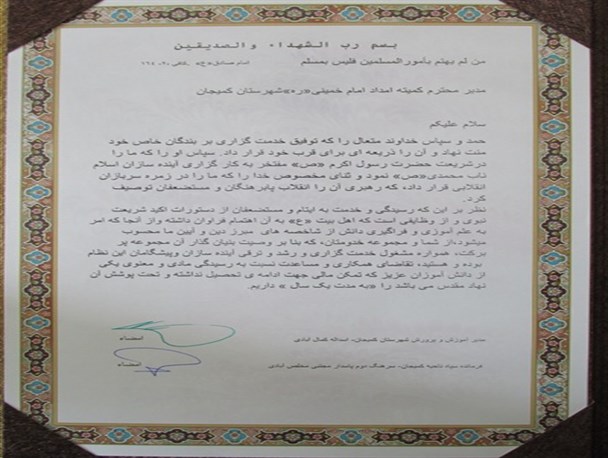 بسم رب الشهداء والصدیقین
من لم یهتم بأمورالمسلمین فلیس بمسلم امام صادق«ع»
مدیر محترم کمیته امداد امام خمینی«ره»شهرستان کمیجان
سلام علیکم
حمد و سپاس خداوند متعال را که توفیق خدمت گزاری بر بندگان خاص خود
منت نهاد و آن را ذریعه ای برای قرب خود قرار داد. سپاس او را که ما را
درشریعت حضرت رسول اکرم «ص» مفتخر به کار گزاری آینده سازان اسلام
ناب محمدی«ص» نمود و ثنای مخصوص خدا را که ما را در زمره سربازان
انقلابی قرار داده که رهبری آن را انقلاب پابرهنگان و مستضعفان توصیف
کرد.
نظر بر این که رسیدگی و خدمت به ایتام و مستضعفان از دستورات اکید شریعت
نبوی و از وظایفی است که اهل بیت «ع» به آن اهتمام فراوان داشته وازآنجا که امر
به علم آموزی و فراگیری دانش از شاخصه های مبرز دین و آیین ما محسوب
میشود،از شما و مجموعه خدومتان، که بنا بر وصیت بنیان گذار آن مجموعه پر
برکت، همواره مشغول خدمت گزاری و رشد و ترقی آینده سازان وپیشگامان این نظام
بوده و هستید، تقاضای همکاری و مساعدت نسبت به رسیدگی مادی و معنوی یکی
از دانش آموزان عزیز که تمکن مالی جهت ادامه ی تحصیل نداشته و تحت پوشش آن
نهاد مقدس می باشد را «به مدت یک سال » داریم.
مدیر آموزش و پرورش شهرستان کمیجان، اسداله کمال آبادی امضاء
فرمانده سپاه ناحیه کمیجان، سرهنگ دوم پاسدار مجتبی مخلص آبادی امضاء